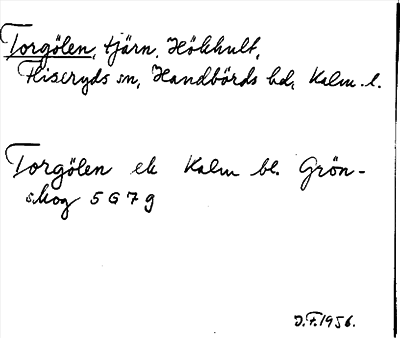 Torgölen, tjärn, Hökhult,
Fliseryds sn, Handbörds hd, Kalm. l.
Torgölen ek Kalm bl. Grön-
skog 5 G 7 g
J. F. 1956.